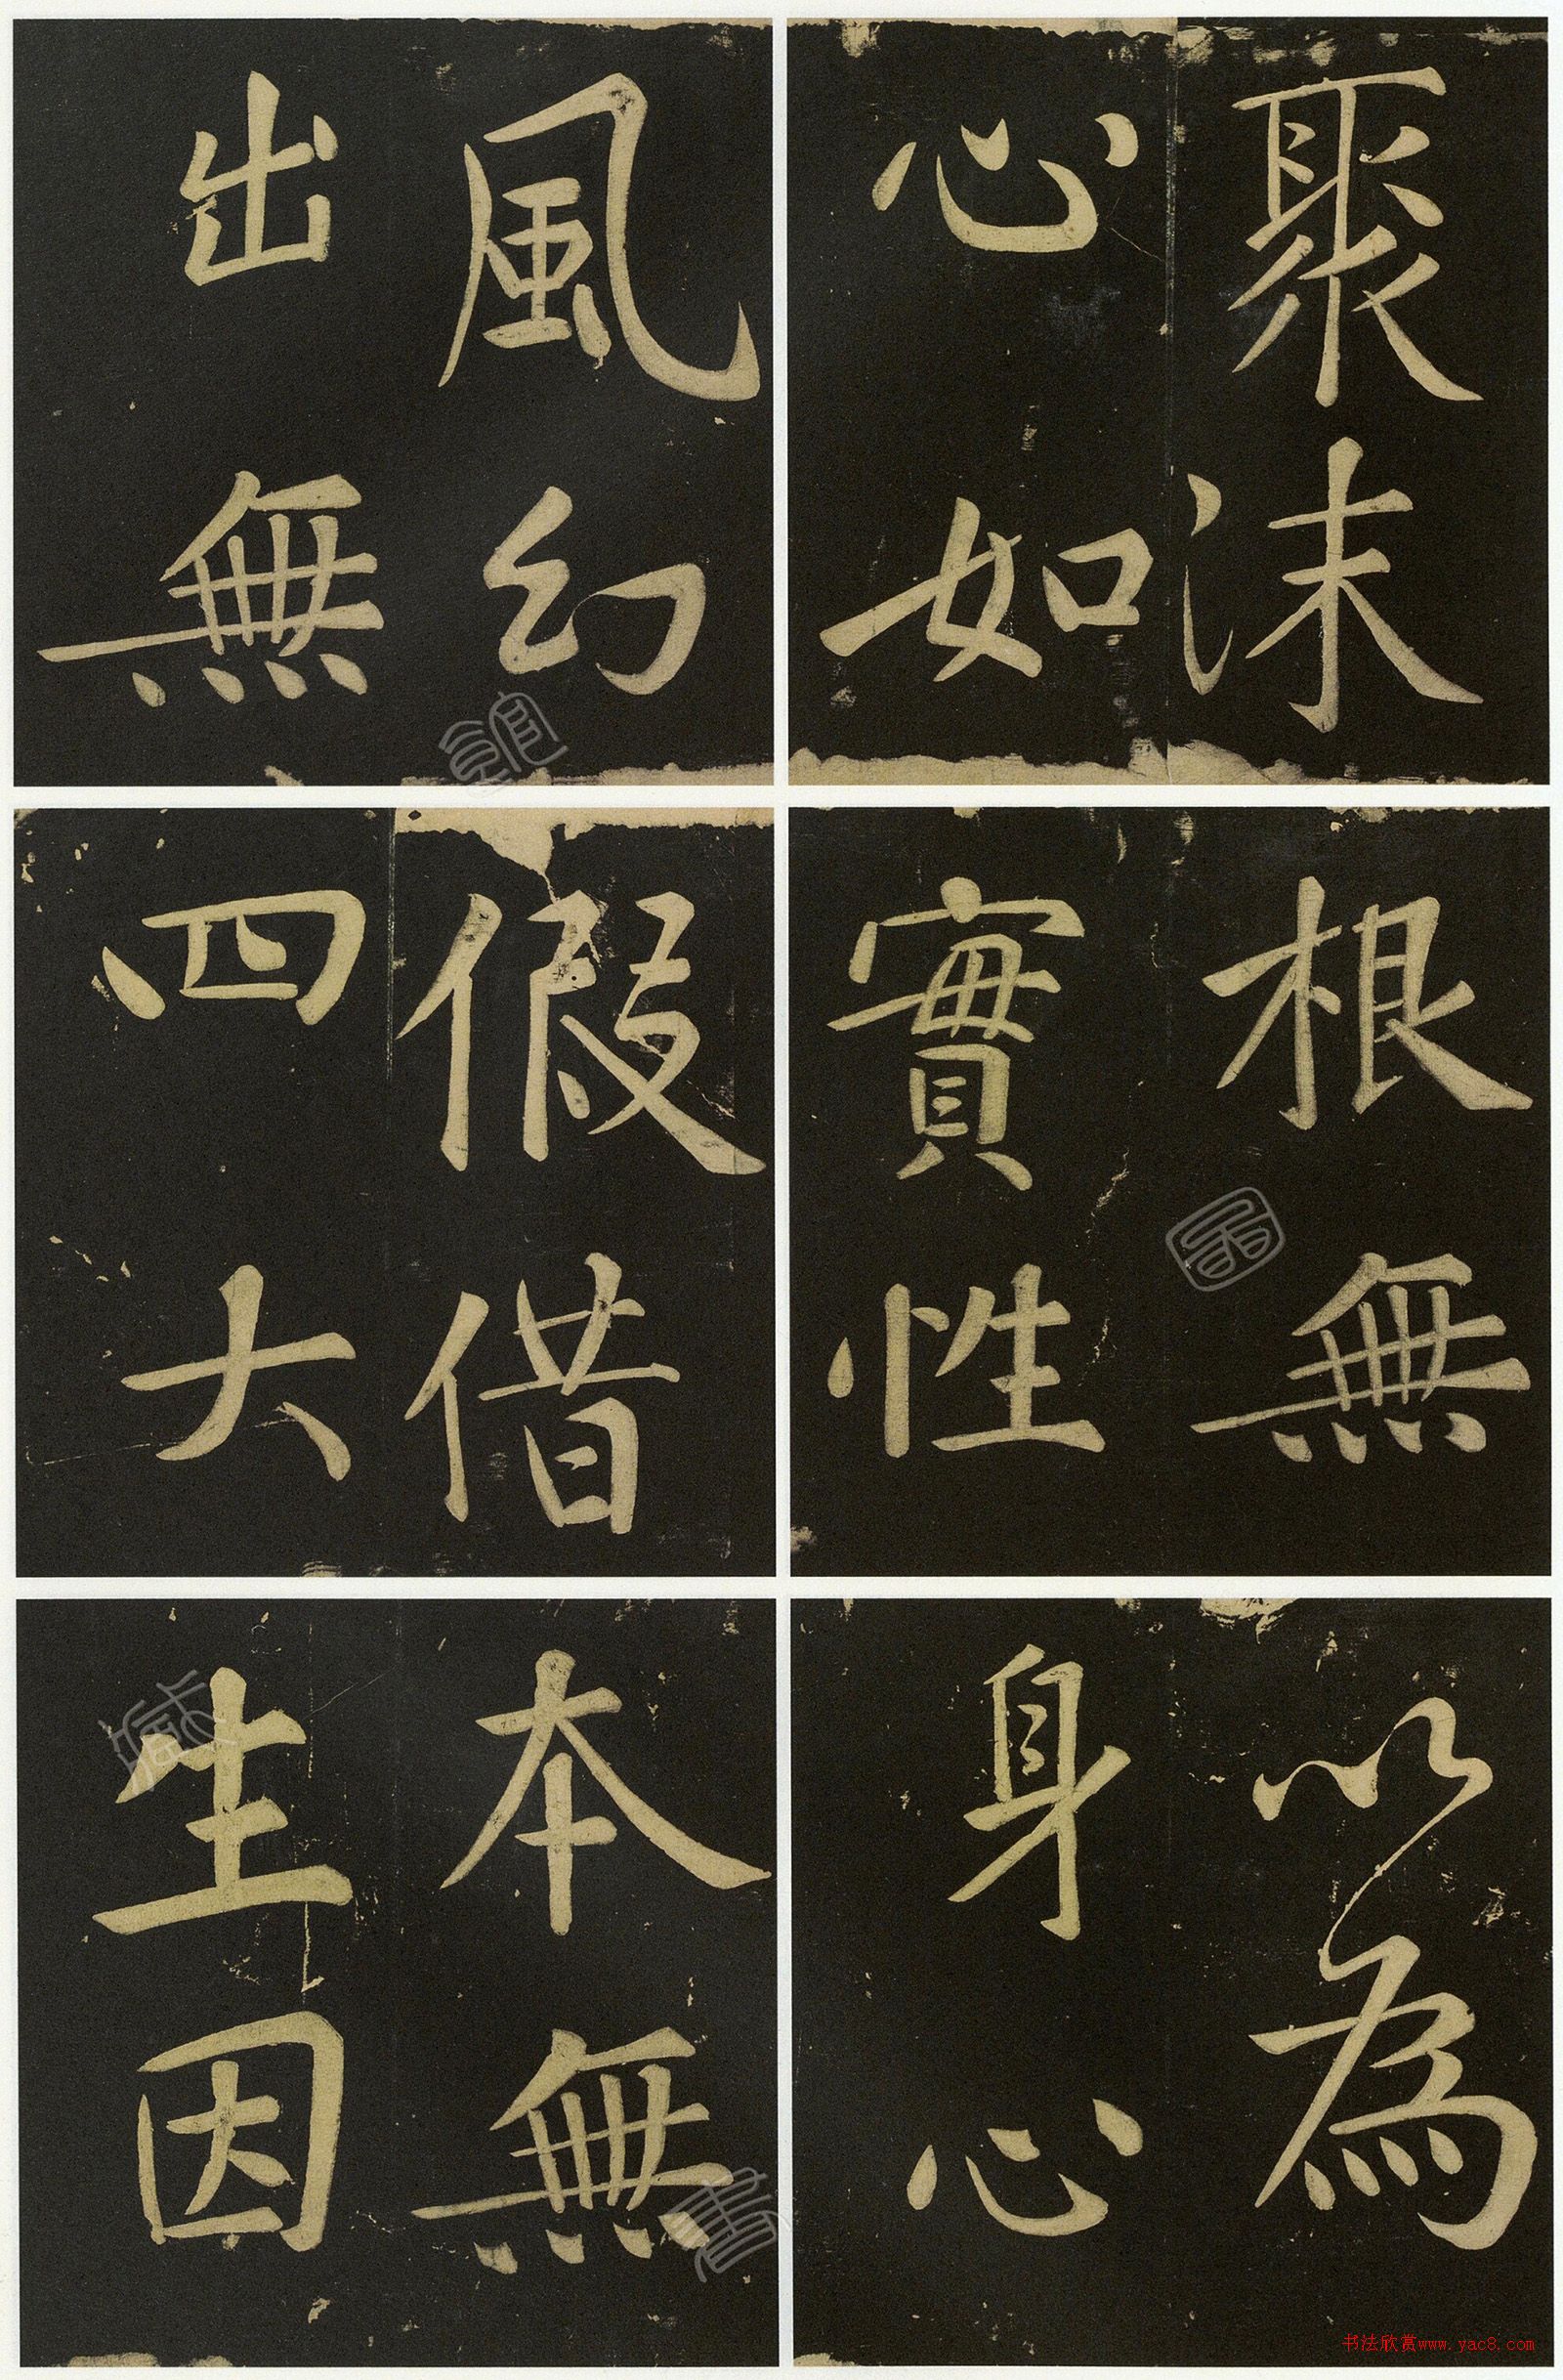 聚沫
心如
風幻
出無
根無
實性
假借
四大
以為
身心
本無
生因
书法欣赏www.yac8.com